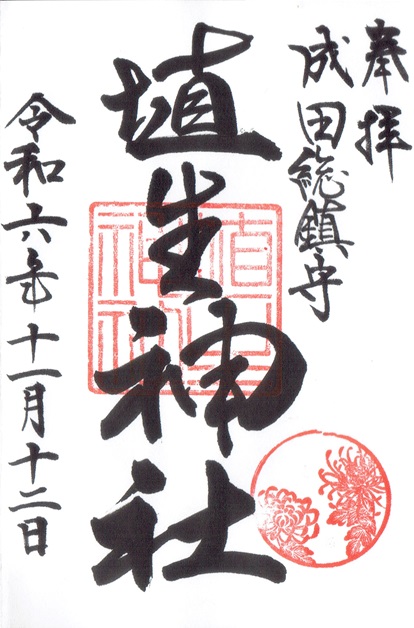 奉拝
成田総鎮守
埴生神社
令和六年十一月十二日